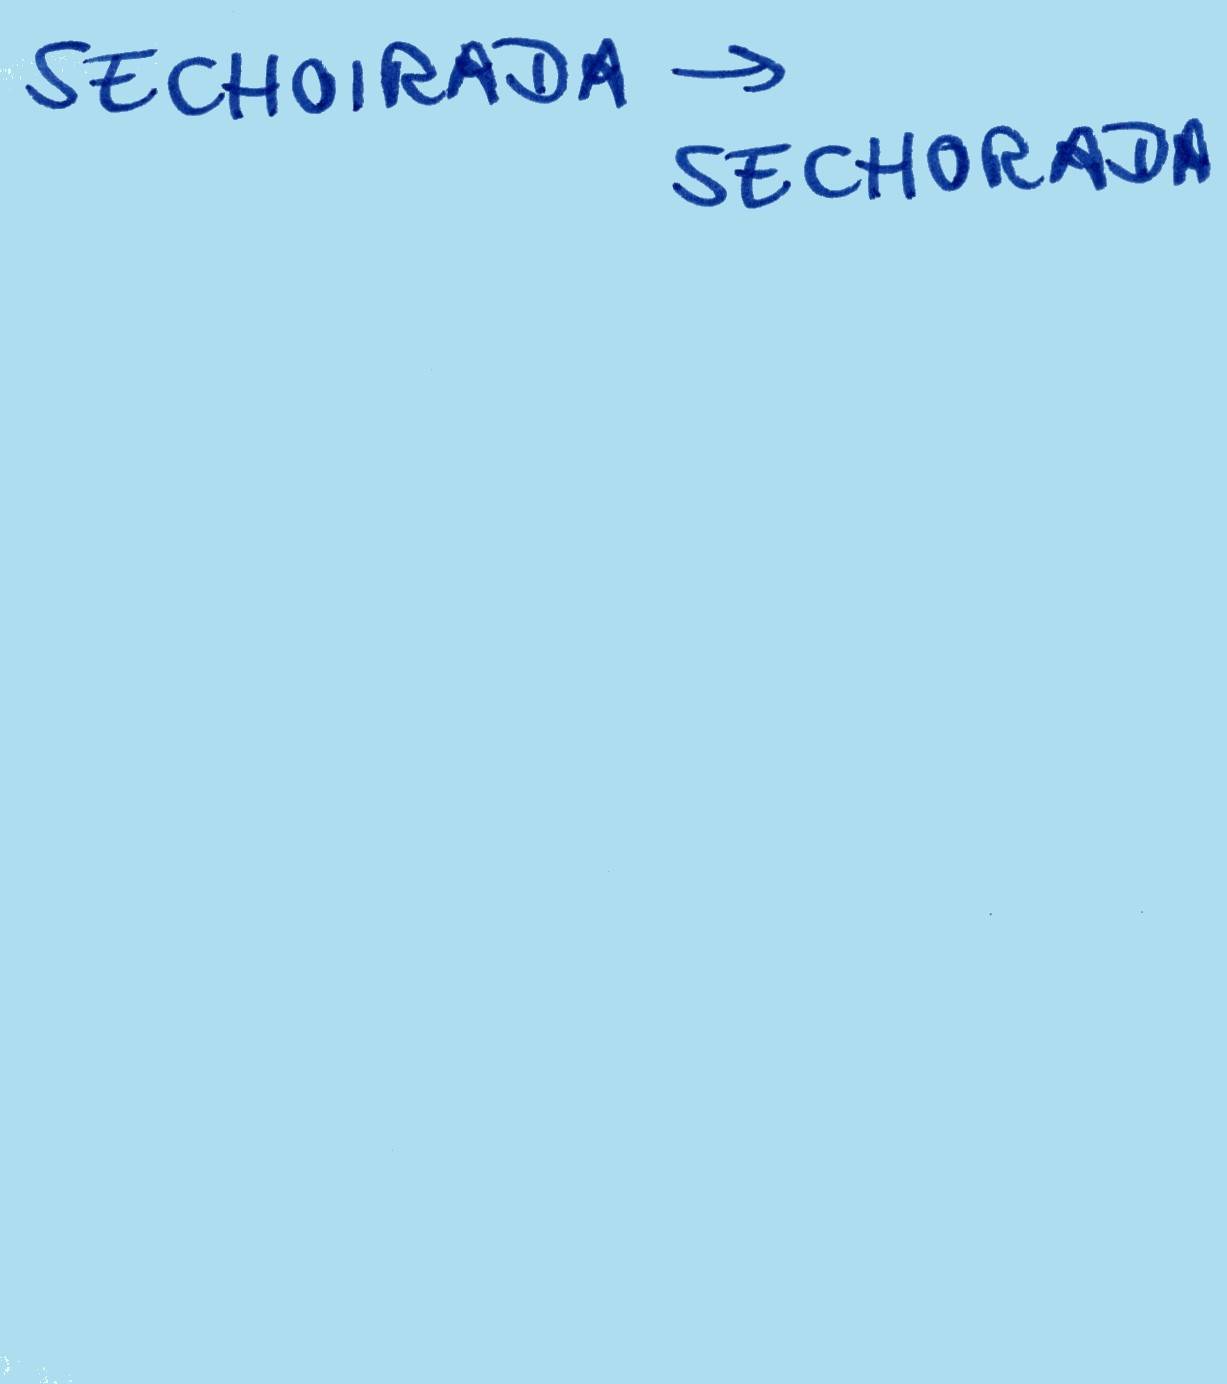 SECHOIRADA →
SECHORADA